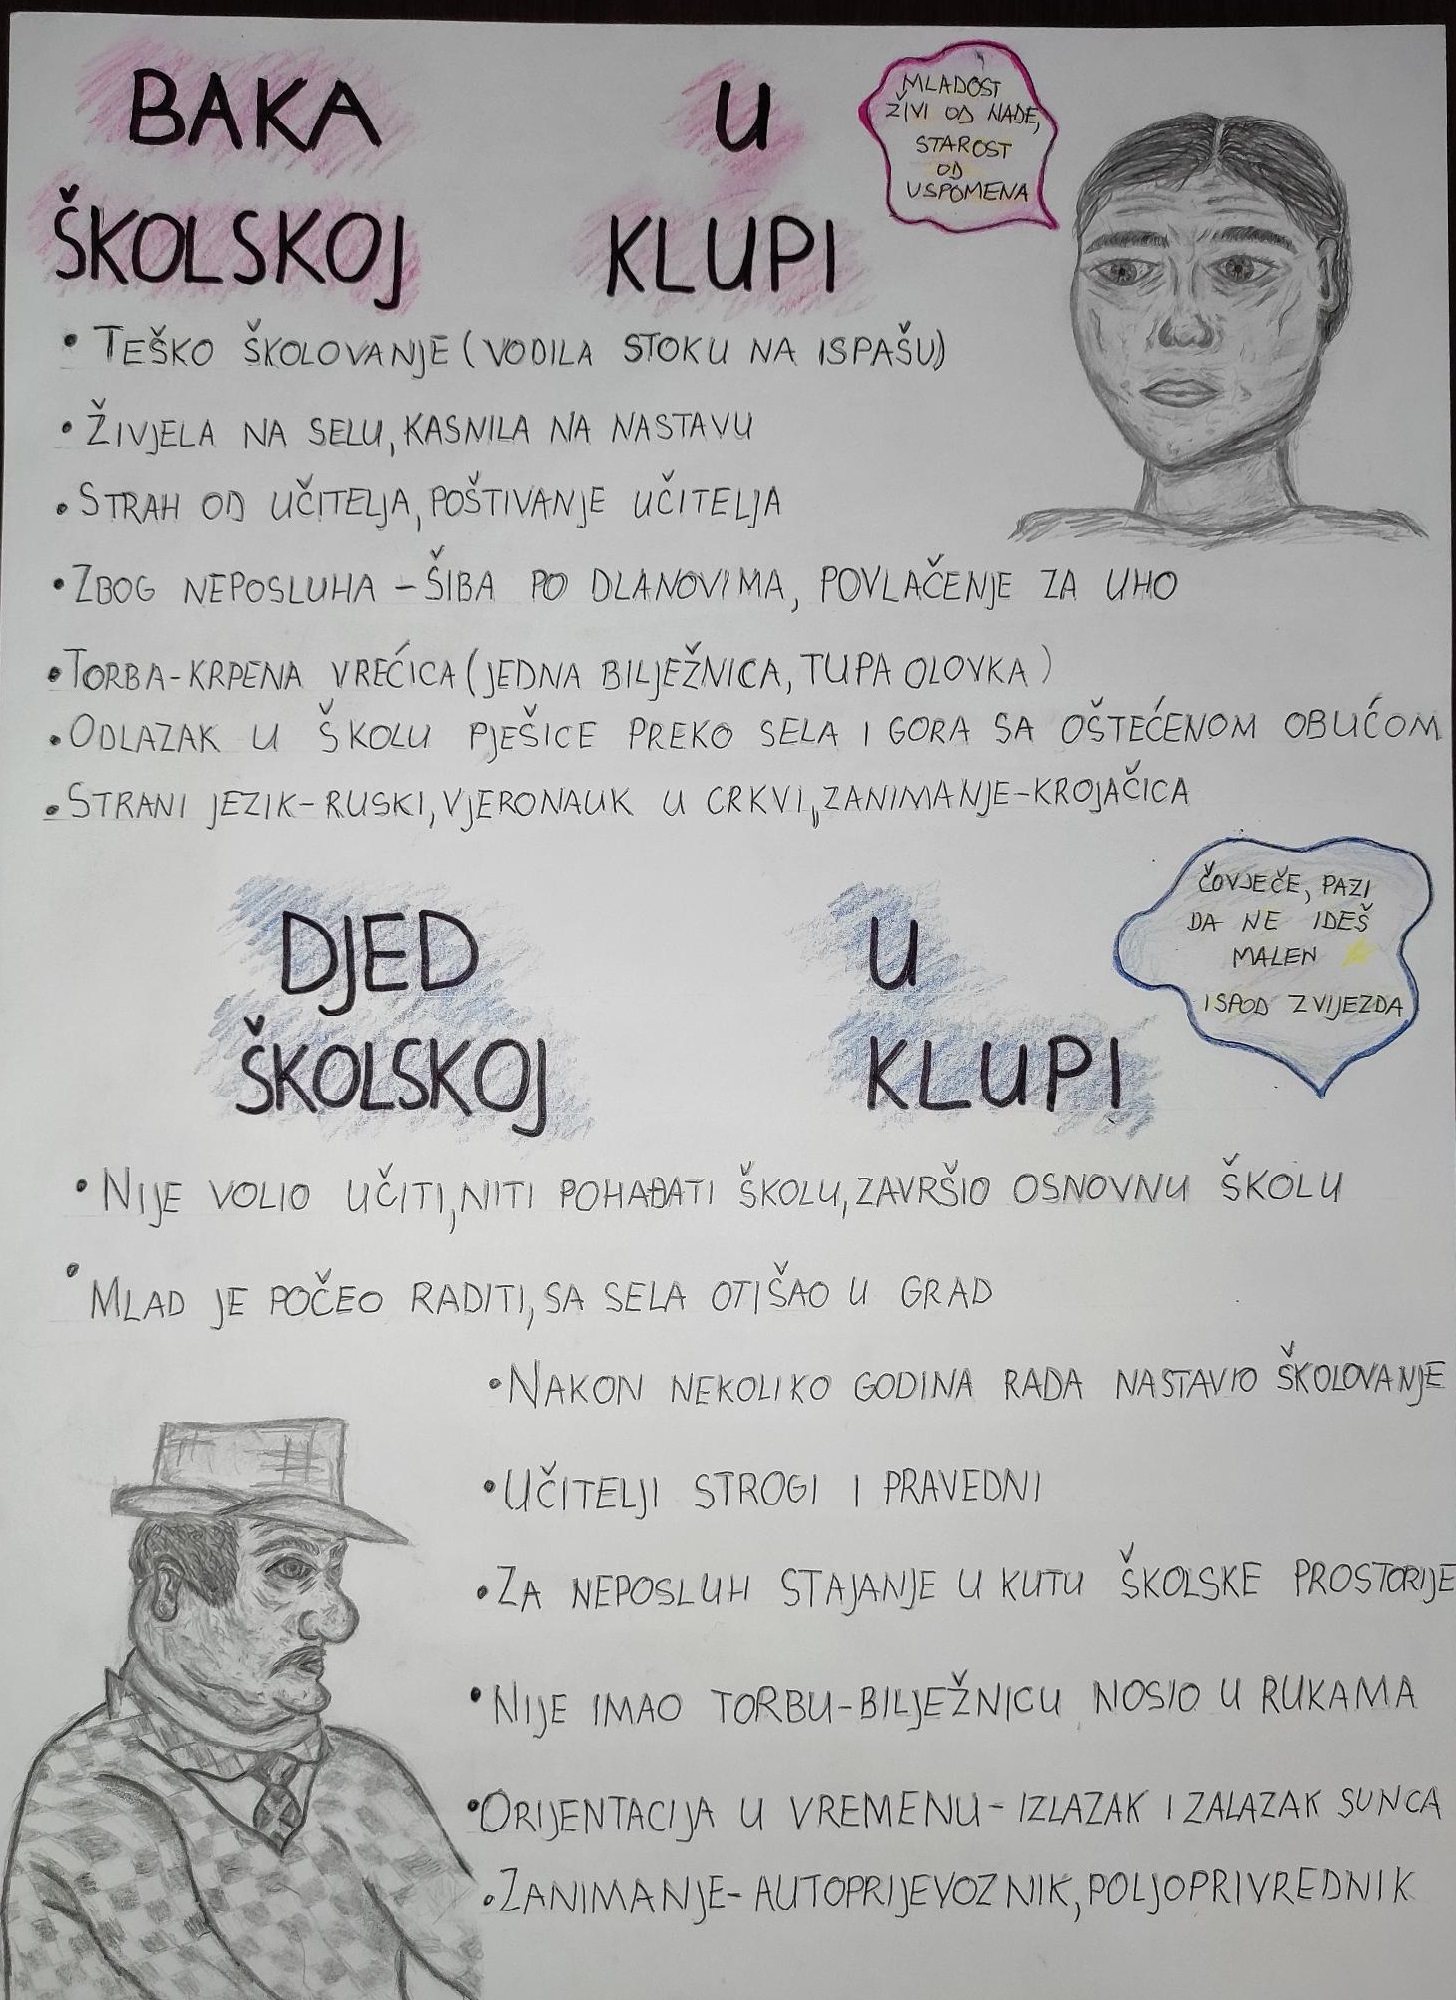 BAKA U
ŠKOLSKOJ KLUPI
MLADOST
ŽIVI OD NADE,
STAROST
OD
USPOMENA
• TEŠKO ŠKOLOVANJE (VODILA STOKU NA ISPAŠU)
• ŽIVJELA NA SELU, KASNILA NA NASTAVU
• STRAH OD UČITELJA, POŠTIVANJE UČITELJA
• ZBOG NEPOSLUHA - ŠIBA PO DLANOVIMA, POVLAČENJE ZA UHO
• TORBA-KRPENA VREĆICA (JEDNA BILJEŽNICA, TUPA OLOVKA)
• ODLAZAK U ŠKOLU PJEŠICE PREKO SELA I GORA SA OŠTEĆENOM OBUĆOM
• STRANI JEZIK-RUSKI, VJERONAUK U CRKVI, ZANIMANJE-KROJAČICA
DJED U
ŠKOLSKOJ KLUPI
ČOVJEČE, PAZI
DA NE IDEŠ
MALEN
ISPOD ZVIJEZDA
• NIJE VOLIO UČITI, NITI POHAĐATI ŠKOLU, ZAVRŠIO OSNOVNU ŠKOLU
• MLAD JE POČEO RADITI, SA SELA OTIŠAO U GRAD
• NAKON NEKOLIKO GODINA RADA NASTAVIO ŠKOLOVANJE
• UČITELJI STROGI I PRAVEDNI
• ZA NEPOSLUH STAJANJE U KUTU ŠKOLSKE PROSTORIJE
• NIJE IMAO TORBU-BILJEŽNICU NOSIO U RUKAMA
• ORIJENTACIJA U VREMENU - IZLAZAK I ZALAZAK SUNCA
• ZANIMANJE - AUTOPRIJEVOZNIK, POLJOPRIVREDNIK